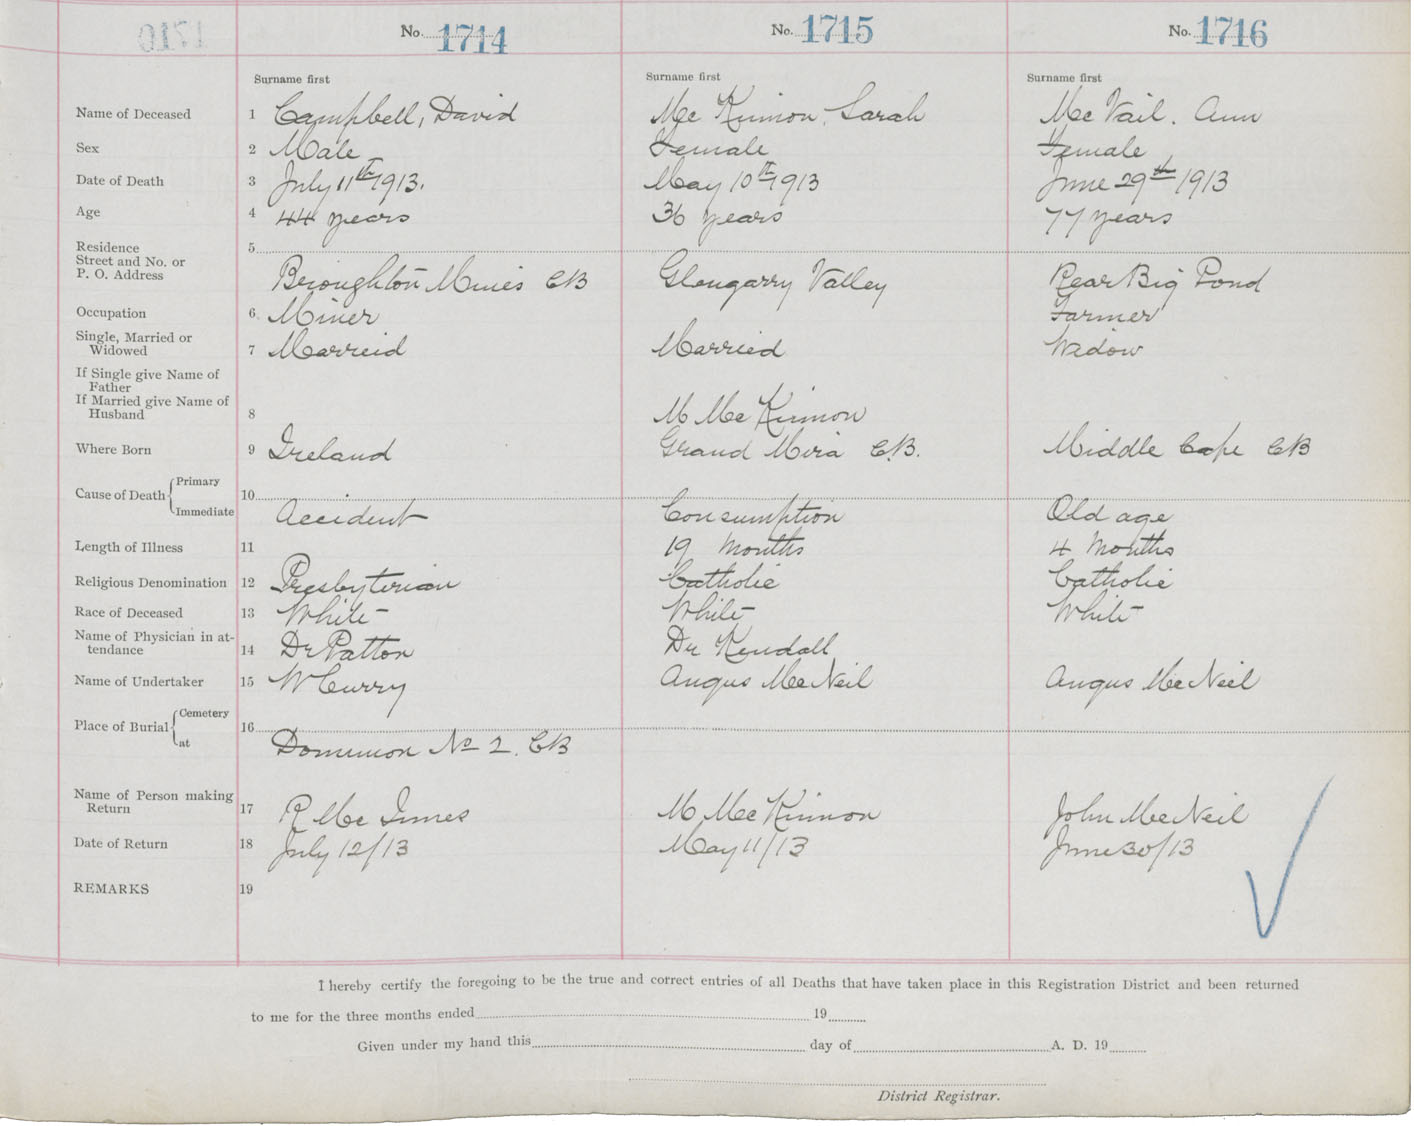 No. 1714 No. 1715 No. 1716
Surname first Surname first Surname first
Name of Deceased 1 Campbell, David Mc Kinnon, Sarah Mc Vail. Ann
Sex 2 Male Female Female
Date of Death 3 July 11th 1913. May 10th 1913 June 29th 1913
Age 4 44 years 36 years 77 years
Residence 5
Street and No. or
P. O. Address Broughton Mines CB Glengarry Valley Rear Big Pond
Occupation 6 Miner Farmer
Single, Married or
Widowed 7 Marreid Married Widow
If Single give Name of
Father
If Married give Name of
Husband 8 M Mc Kinnon
Where Born 9 Ireland Grand Mira C.B. Middle Cape CB
Cause of Death Primary 10
Immediate Accident Consumption Old age
Length of Illness 11 19 Months 4 Months
Religious Denomination 12 Presbyterian Catholic Catholic
Race of Deceased 13 White White White
Name of Physician in at-
tendance 14 Dr Patton Dr Kendall
Name of Undertaker 15 W Curry Angus Mc Neil Angus Mc Neil
Place of Burial Cemetery 16
at Dominion No 2. CB
Name of Person making
Return 17 R Mc Innes M Mc Kinnon John Mc Neil
Date of Return 18 July 12/13 May 11/13 June 30/13
REMARKS 19
I hereby certify the foregoing to be the true and correct entries of all Deaths that have taken place in this Registration District and been returned
to me for the three months ended 19
Given under my hand this day of A. D. 19
District Registrar.